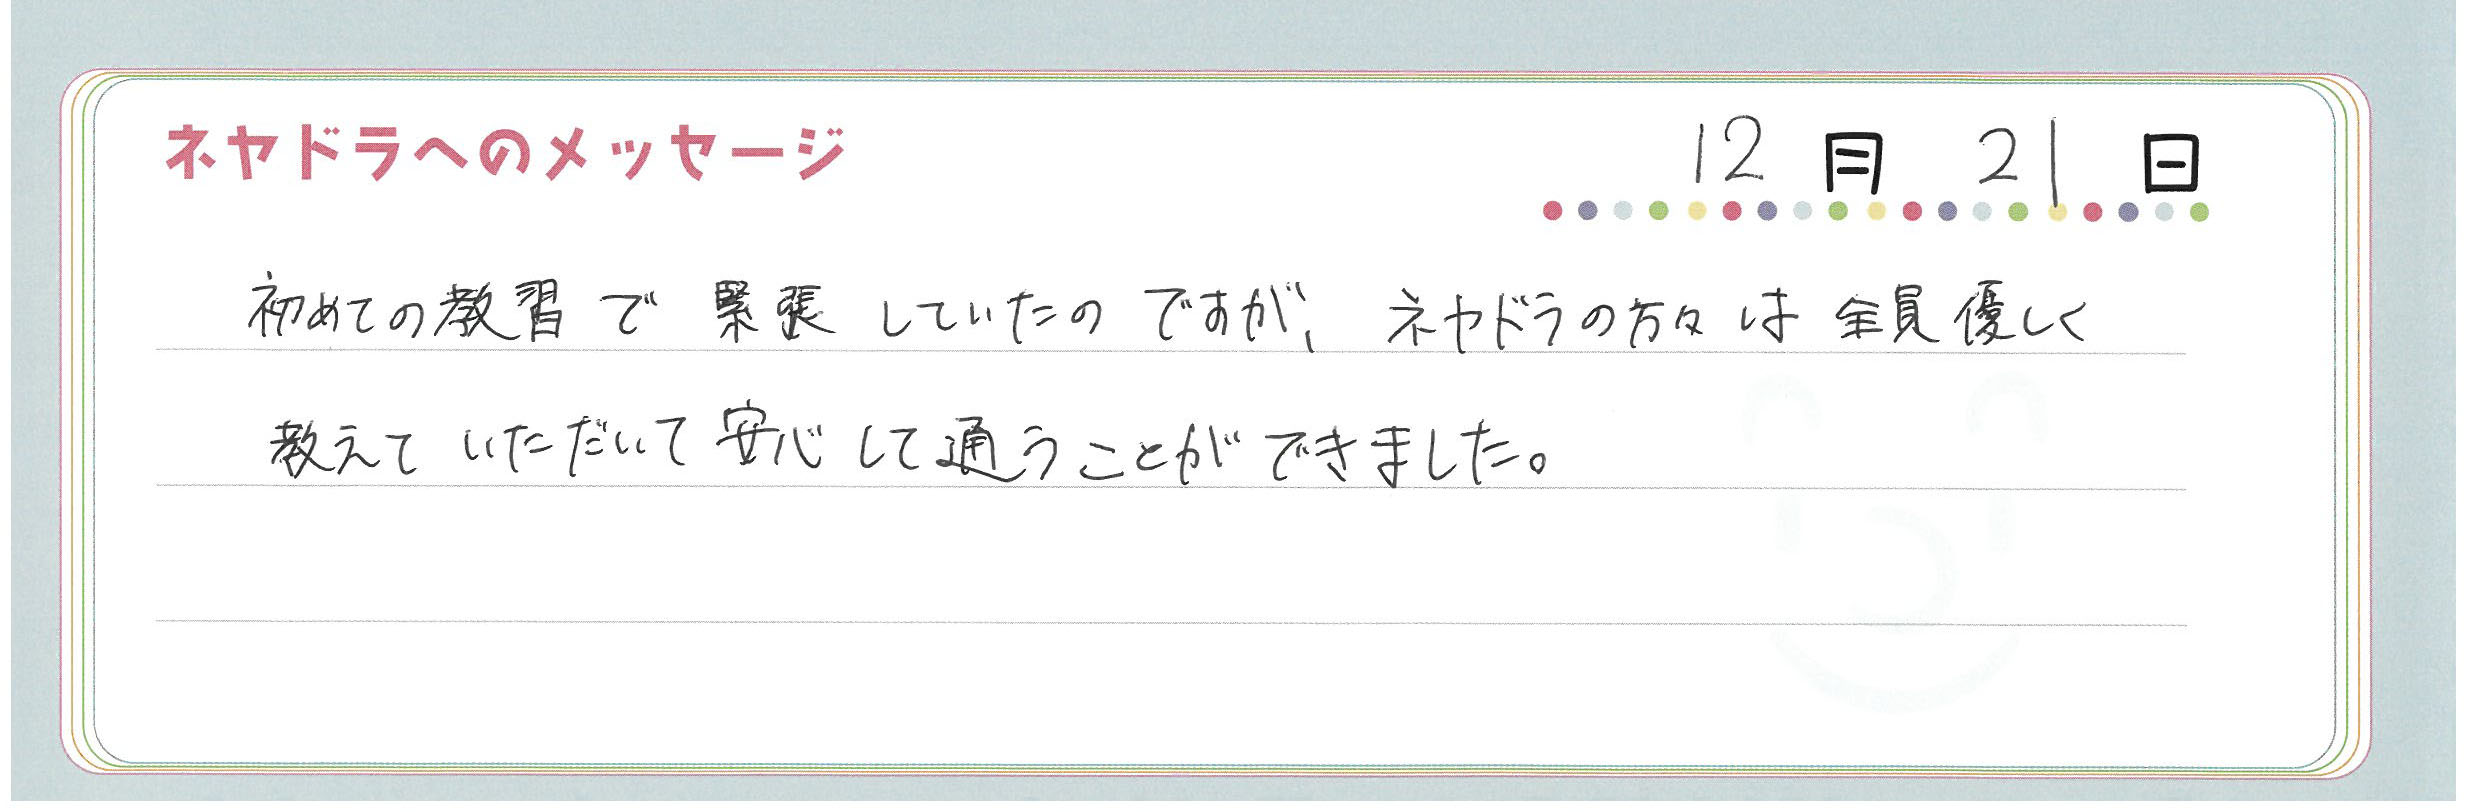 ネヤドラへのメッセージ
12月 21日
初めての教習で緊張していたのですが、ネヤドラの方々は全員優しく
教えていただいて安心して通うことができました。